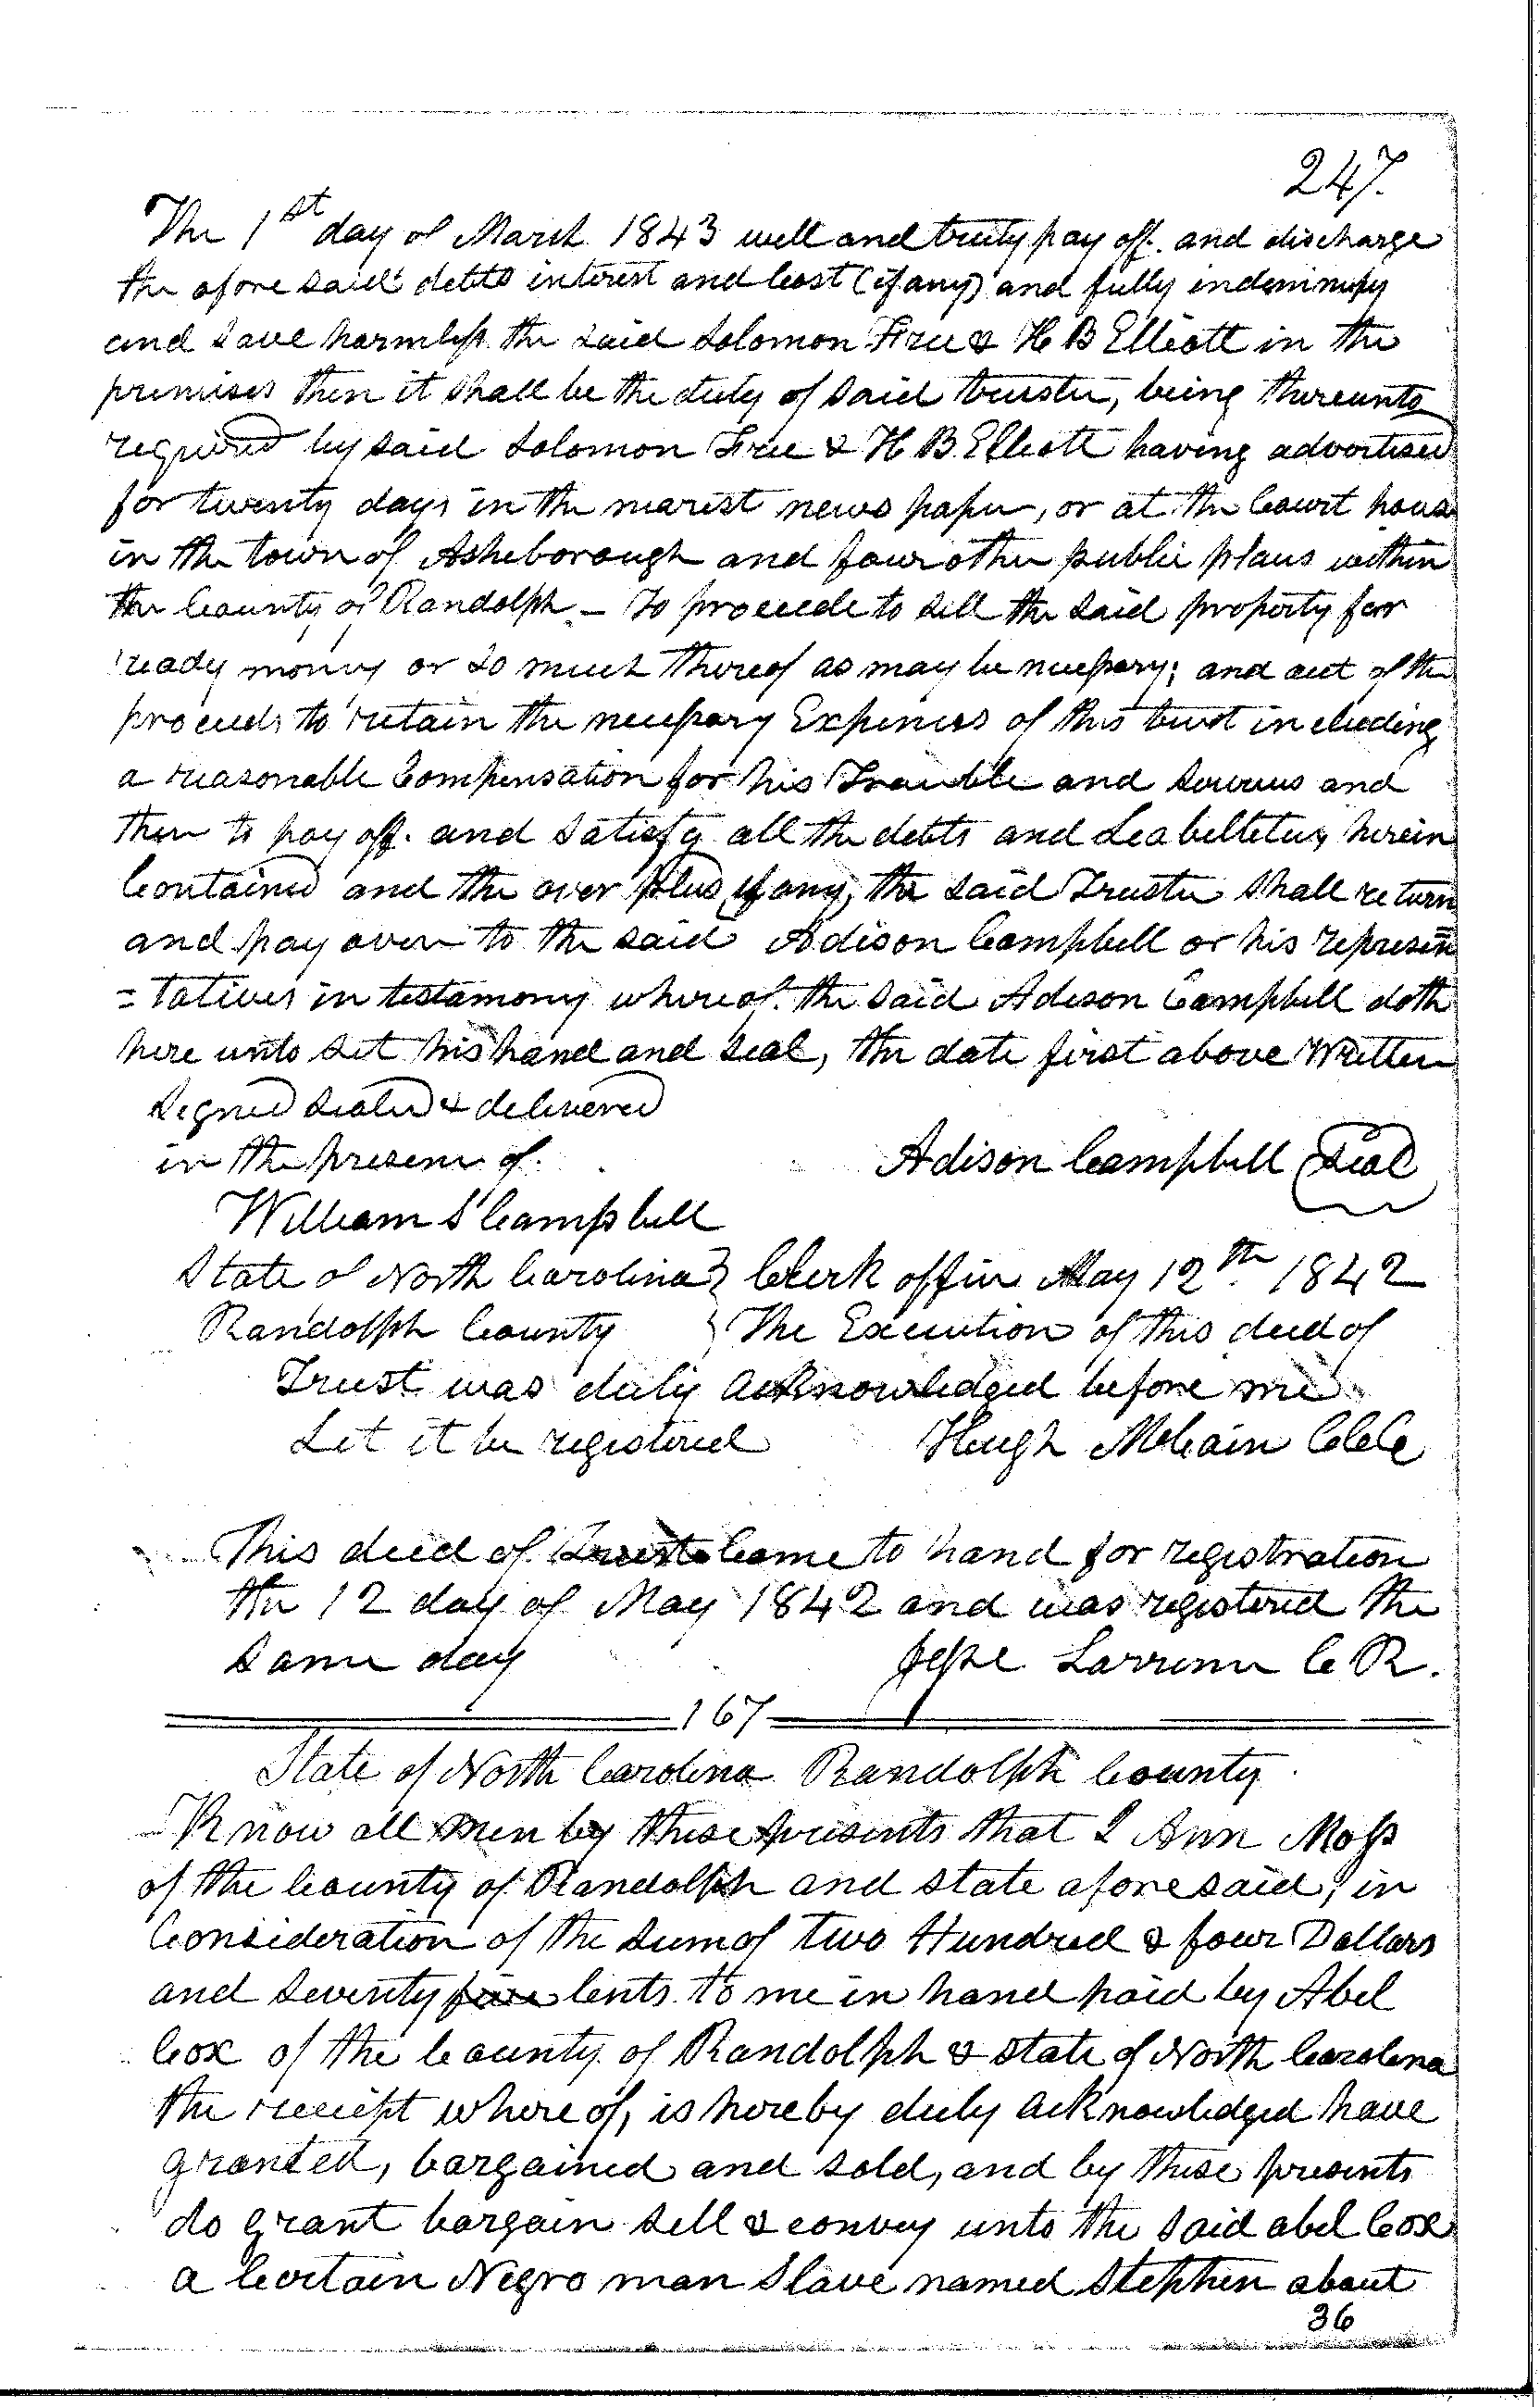 247.
The 1st day of March 1843 well and truly pay off. and discharge
the afore said debts interest and Cost (if any) and fully indemnify
and save harmless the said Solomon Free & H B Elliott in the
premises then it shall be the duty of said trustee, being thereunto
required by said Solomon Free & H B Elliott having advertised
for twenty days in the nearest news paper, or at the Court house
in the town of Asheborough and four other public places within
the County of Randolph - To proceede to sell the said property for
ready money or so much thereof as may be necessary; and out of the
proceeds to retain the necessary Expenses of this trust including
a reasonable Compensation for his Trouble and Services and
then to pay off. and satisfy all the debts and Leabilleties herein
Contained and the over plus, if any, the said Trustee shall return
and pay over to the said Adison Campbell or his represen
=tatives in testamony whereof. the said Adison Campbell doth
here unto set his hand and seal, the date first above Written
Signed sealed & delivered
in the presence of.
Adison Campbell Seal
William S Campbell
State of North Carolina } Clerk office May 12th 1842
Randolph County } The Execution of this deed of
Trust was duly acknowledged before me
Let it be registered Hugh McCain CCC
This deed of Trust Came to hand for registration
the 12 day of May 1842 and was registered the
same day Jesse Larrence C R.
167
State of North Carolina Randolph County
Know all men by these presents that I Ann Moss
of the County of Randolph and state aforesaid, in
Consideration of the sum of two Hundred & four Dollars
and seventy five Cents to me in hand paid by Abel
Cox of the County of Randolph & state of North Carolina
the receipt where of, is hereby duly acknowledged have
granted, bargained and sold, and by these presents
do grant bargain sell & convey unto the said abel Cox
a Certain Negro man Slave named Stephen about
36